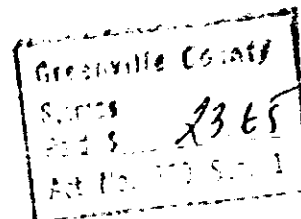 Greenville County
Stamps
Paid $ 23.65
Act No. Sec. 1